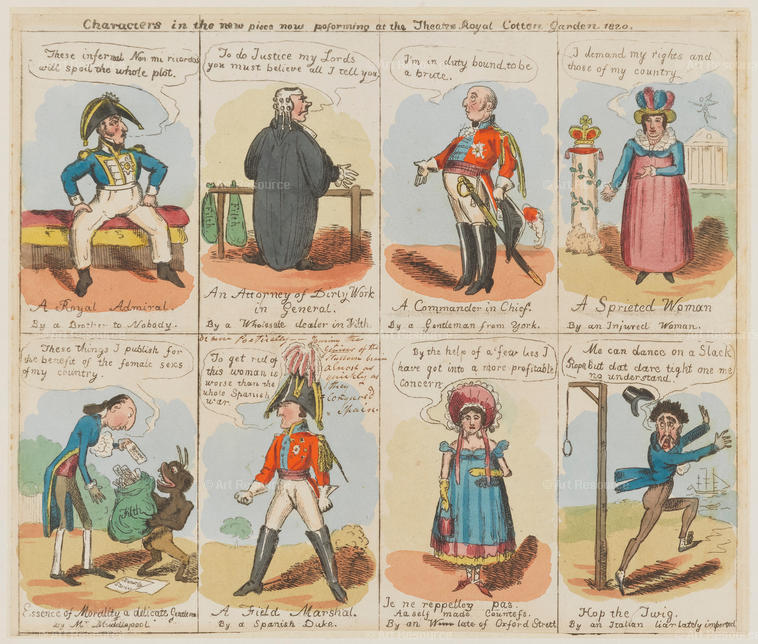 Characters in the new piece now poforming at the Theatre Royal Cotton Garden 1820.
These infernal Non mi ricordos
will spoil the whole plot.
A Royal Admiral.
By a Brother to Nobody.
To do Justice my Lords
you must believe all I tell you
Filth
Filth
An Attorney of Dirty Work
in General.
By a Wholesale dealer in Filth
I'm in duty bound to be
a brute.
A Commander in Chief.
By a Gentleman from York.
I demand my rights and
those of my country
A Sprieted Woman
By an Injured Woman.
These things I publish for
the benefit of the female sexs
of my country.
Filth
Essence of Morality a delicate Gentleman
by Mr Muddlepool
To get rid of
this woman is
worse than the
whole Spanish
war.
almost as
they
conquered
Spain
A Field Marshal.
By a Spanish Duke.
By the help of a few lies I
have got into a more profitable
Concern
Je ne reppelley pas.
A self made Countess.
By an late of Oxford Strett
Me can dance on a Slack
Rope but dat dare tight one me
no understand.
Hop the Twig.
By an Italian liar lately imported
© Art Resource
© Art Resource
© Art Resource
© Art Resource
© Art Resource
© Art Resource